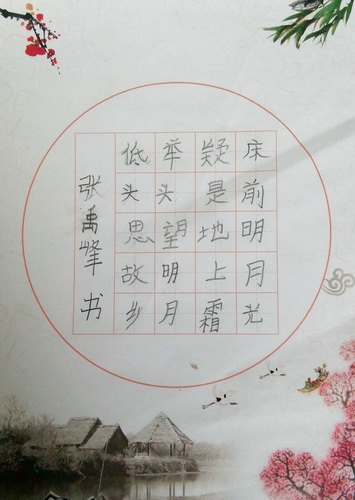 床前明月光
疑是地上霜
举头望明月
低头思故乡
张禹峰书